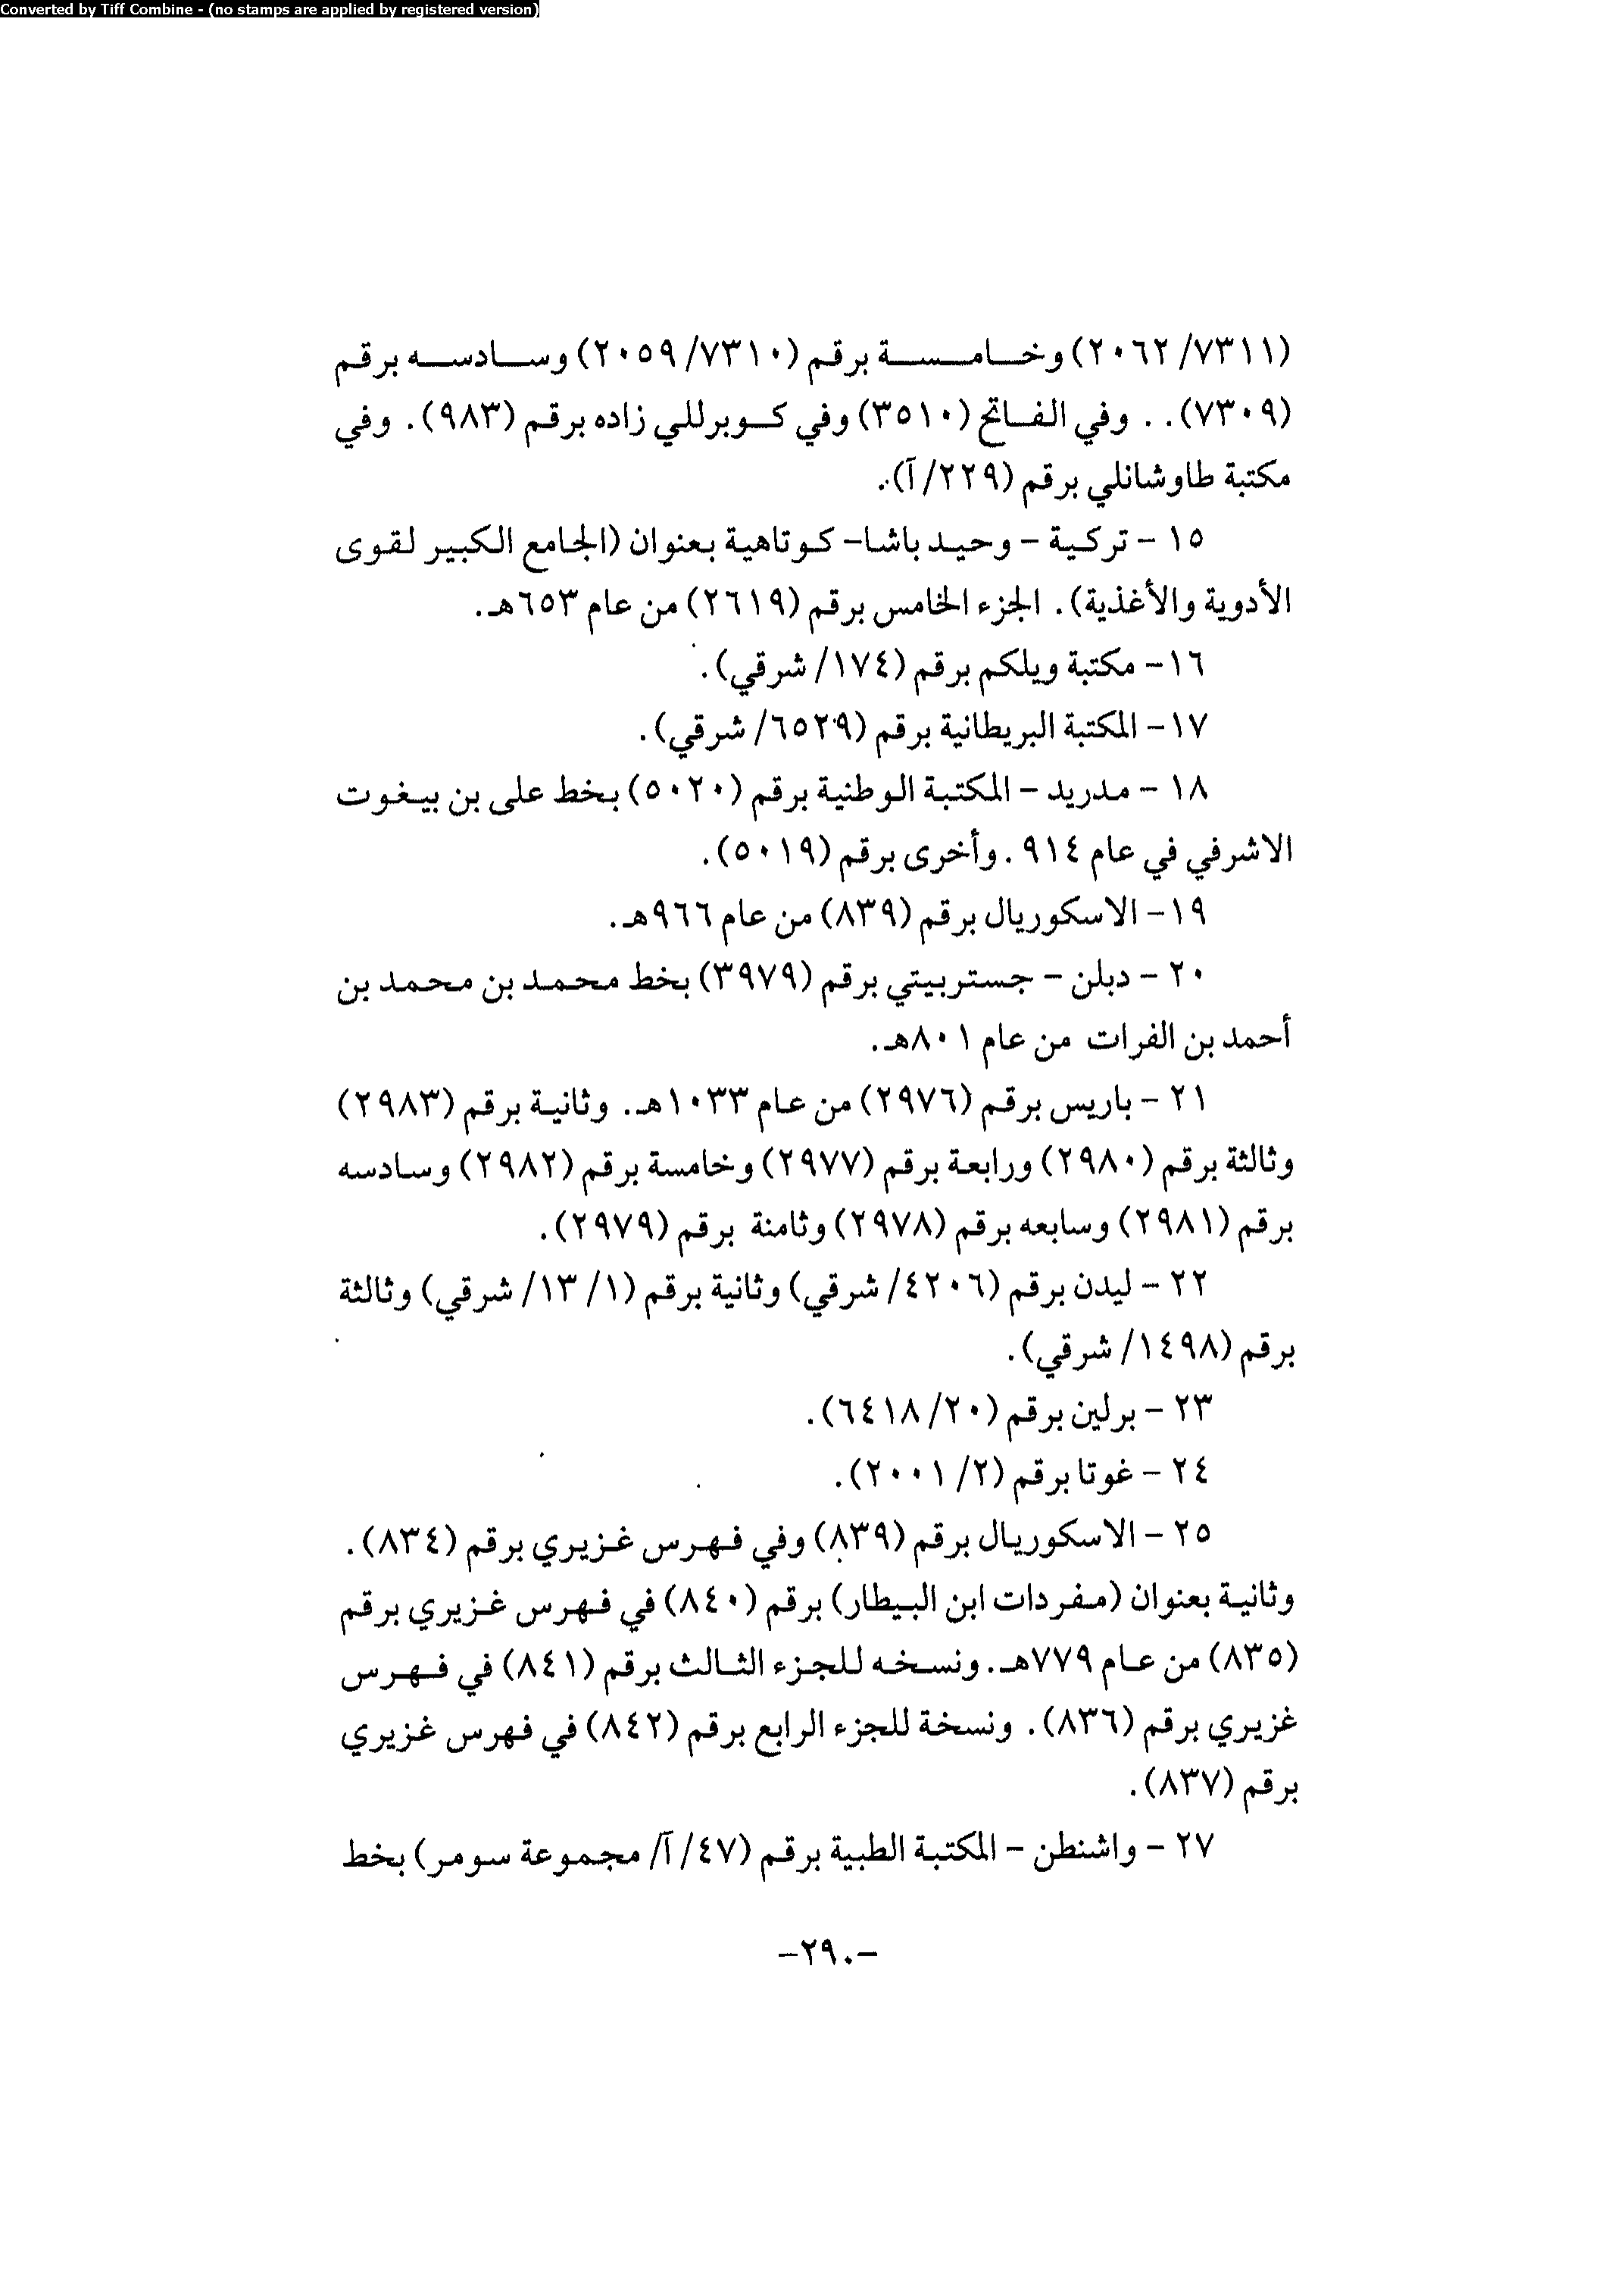 Converted by Tiff Combine - (no stamps are applied by registered version)
(٧٣١١/ ٢٠٦٢) وخامسة برقم (٧٣١٠/ ٢٠٥٩) وسادسه برقم
(٧٣٠٩). . وفي الفاتح (٣٥١٠) وفي كوبرللي زاده برقم (٩٨٣). وفي
مكتبة طاوشانلي برقم (٢٢٩/آ).
١٥ - تركية - وحيد باشا- كوتاهية بعنوان (الجامع الكبير لقوى
الأدوية والأغذية). الجزء الخامس برقم (٢٦١٩) من عام ٦٥٣هـ.
١٦- مكتبة ويلكم برقم (١٧٤/ شرقي).
١٧- المكتبة البريطانية برقم (٦٥٢٩/ شرقي).
١٨ - مدريد - المكتبة الوطنية برقم (٥٠٢٠) بخط على بن بيغوت
الاشرفي في عام ٩١٤ .وأخرى برقم (٥٠١٩).
١٩- الاسكوريال برقم (٨٣٩) من عام ٩٦٦هـ.
٢٠ - دبلن - جستربيتي برقم (٣٩٧٩) بخط محمد بن محمد بن
أحمد بن الفرات من عام ٨٠١هـ.
٢١ - باريس برقم (٢٩٧٦) من عام ١٠٣٣هـ. وثانية برقم (٢٩٨٣)
وثالثة برقم (٢٩٨٠) ورابعة برقم (٢٩٧٧) وخامسة برقم (٢٩٨٢) وسادسه
برقم (٢٩٨١) وسابعه برقم (٢٩٧٨) وثامنة برقم (٢٩٧٩).
٢٢ - ليدن برقم (٤٢٠٦/ شرقي) وثانية برقم (١/ ١٣/ شرقي) وثالثة
برقم (١٤٩٨/ شرقي).
٢٣ - برلين برقم (٢٠/ ٦٤١٨).
٢٤ - غوتا برقم (٢/ ٢٠٠١).
٢٥ - الاسكوريال برقم (٨٣٩) وفي فهرس غزيري برقم (٨٣٤).
وثانية بعنوان (مفردات ابن البيطار) برقم (٨٤٠) في فهرس غزيري برقم
(٨٣٥) من عام ٧٧٩هـ. ونسخه للجزء الثالث برقم (٨٤١) في فهرس
غزيري برقم (٨٣٦). ونسخة للجزء الرابع برقم (٨٤٢) في فهرس غزيري
برقم (٨٣٧).
٢٧ - واشنطن - المكتبة الطبية برقم (٤٧/ آ/ مجموعة سومر) بخط
-٢٩٠-